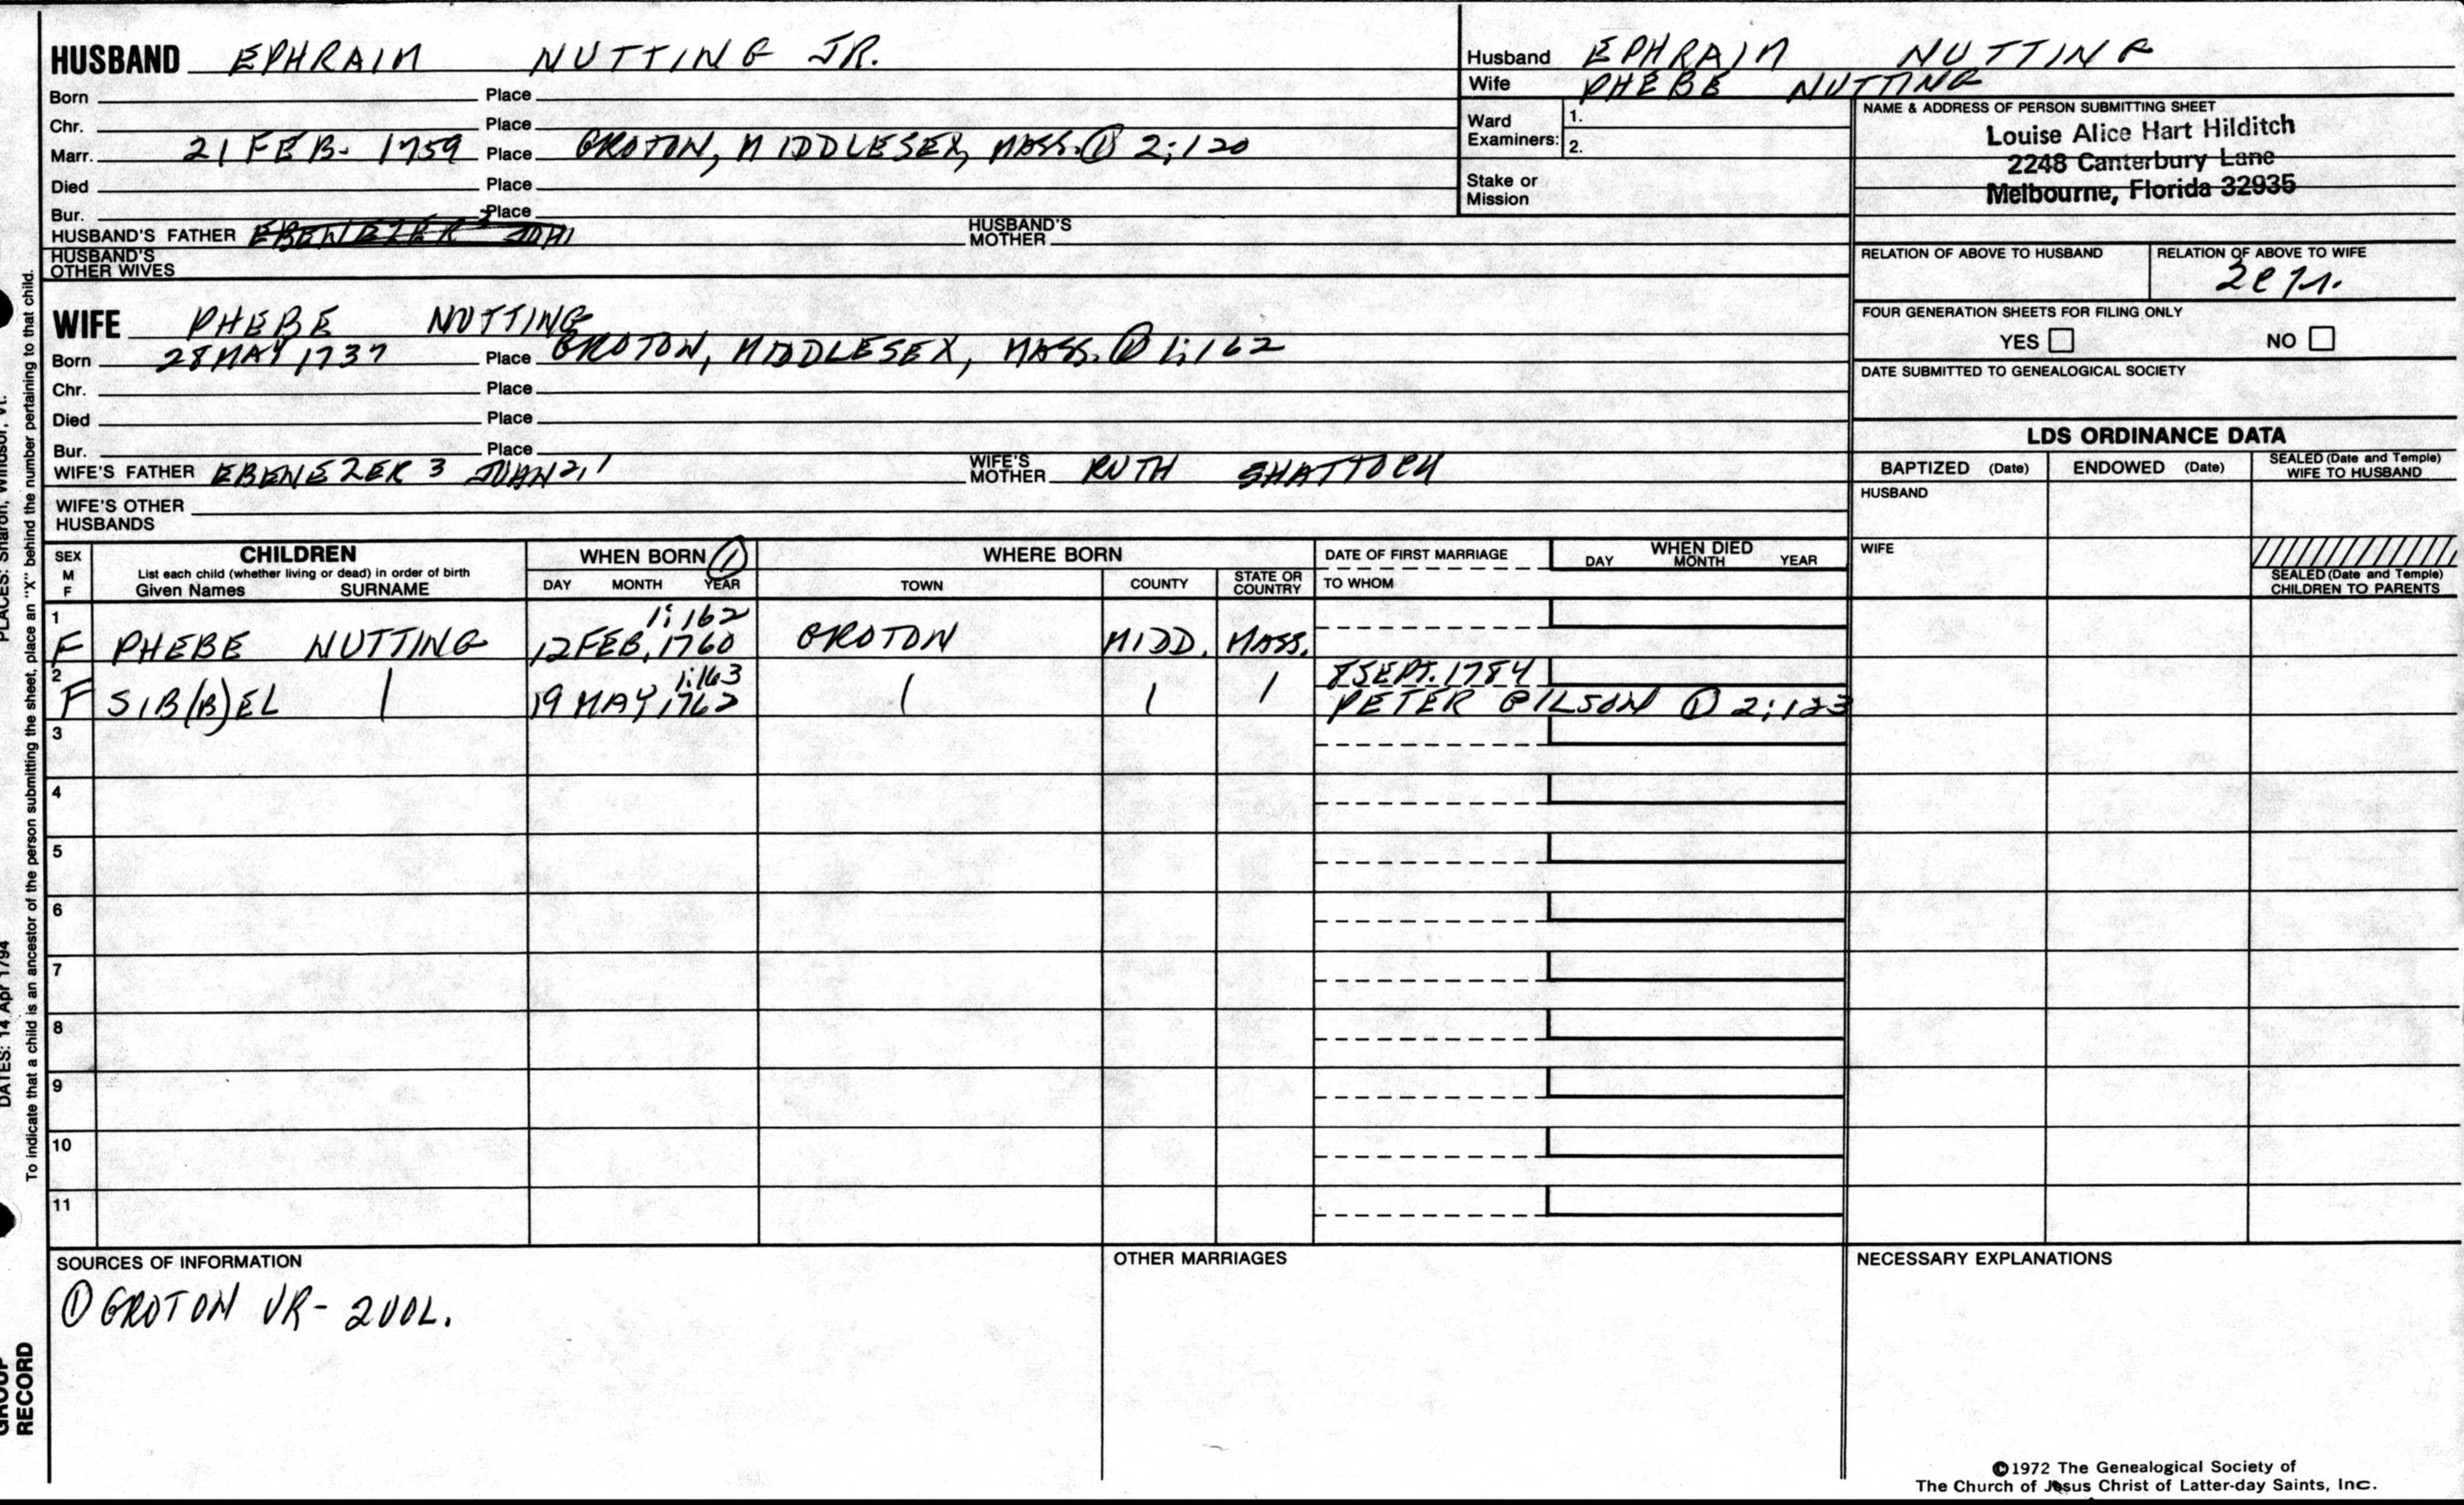 HUSBAND EPHRAIM NUTTING JR.
Born Place
Chr. Place
Marr. 21 FEB. 1759 Place GROTON, MIDDLESEX, MASS. ① 2:120
Died Place
Bur. Place
HUSBAND'S FATHER EBENEZER
HUSBAND'S MOTHER
HUSBAND'S OTHER WIVES
Husband EPHRAIM NUTTING
Wife PHEBE NUTTING
Ward Examiners: 1.
2.
Stake or Mission
NAME & ADDRESS OF PERSON SUBMITTING SHEET
Louise Alice Hart Hilditch
2248 Canterbury Lane
Melbourne, Florida 32935
RELATION OF ABOVE TO HUSBAND RELATION OF ABOVE TO WIFE
WIFE PHEBE NUTTING
Born 28 MAY 1737 Place GROTON, MIDDLESEX, MASS. ① 1:162
Chr. Place
Died Place
Bur. Place
WIFE'S FATHER EBENEZER 3 JOHN 2,1 WIFE'S MOTHER RUTH SHATTUCK
WIFE'S OTHER HUSBANDS
FOUR GENERATION SHEETS FOR FILING ONLY
YES NO
DATE SUBMITTED TO GENEALOGICAL SOCIETY
LDS ORDINANCE DATA
BAPTIZED (Date) ENDOWED (Date) SEALED (Date and Temple) WIFE TO HUSBAND
HUSBAND
WIFE
SEALED (Date and Temple) CHILDREN TO PARENTS
SEX M F
CHILDREN
List each child (whether living or dead) in order of birth
Given Names SURNAME
WHEN BORN ①
DAY MONTH YEAR
WHERE BORN
TOWN COUNTY STATE OR COUNTRY
DATE OF FIRST MARRIAGE
TO WHOM
WHEN DIED
DAY MONTH YEAR
1 1:162
F PHEBE NUTTING 12 FEB. 1760 GROTON MIDD. MASS.
2 1:163 8 SEPT. 1784
F SIB(B)EL | 19 MAY 1762 | | | PETER GILSON ① 2:123
3
4
5
6
7
8
9
10
11
SOURCES OF INFORMATION
① GROTON VR- 2 VOL.
OTHER MARRIAGES
NECESSARY EXPLANATIONS
©1972 The Genealogical Society of
The Church of Jesus Christ of Latter-day Saints, Inc.
PLACES: Sharon, Windsor, Vt.
To indicate that a child is an ancestor of the person submitting the sheet, place an "X" behind the number pertaining to that child.
DATES: 14 Apr 1794
GROUP
RECORD